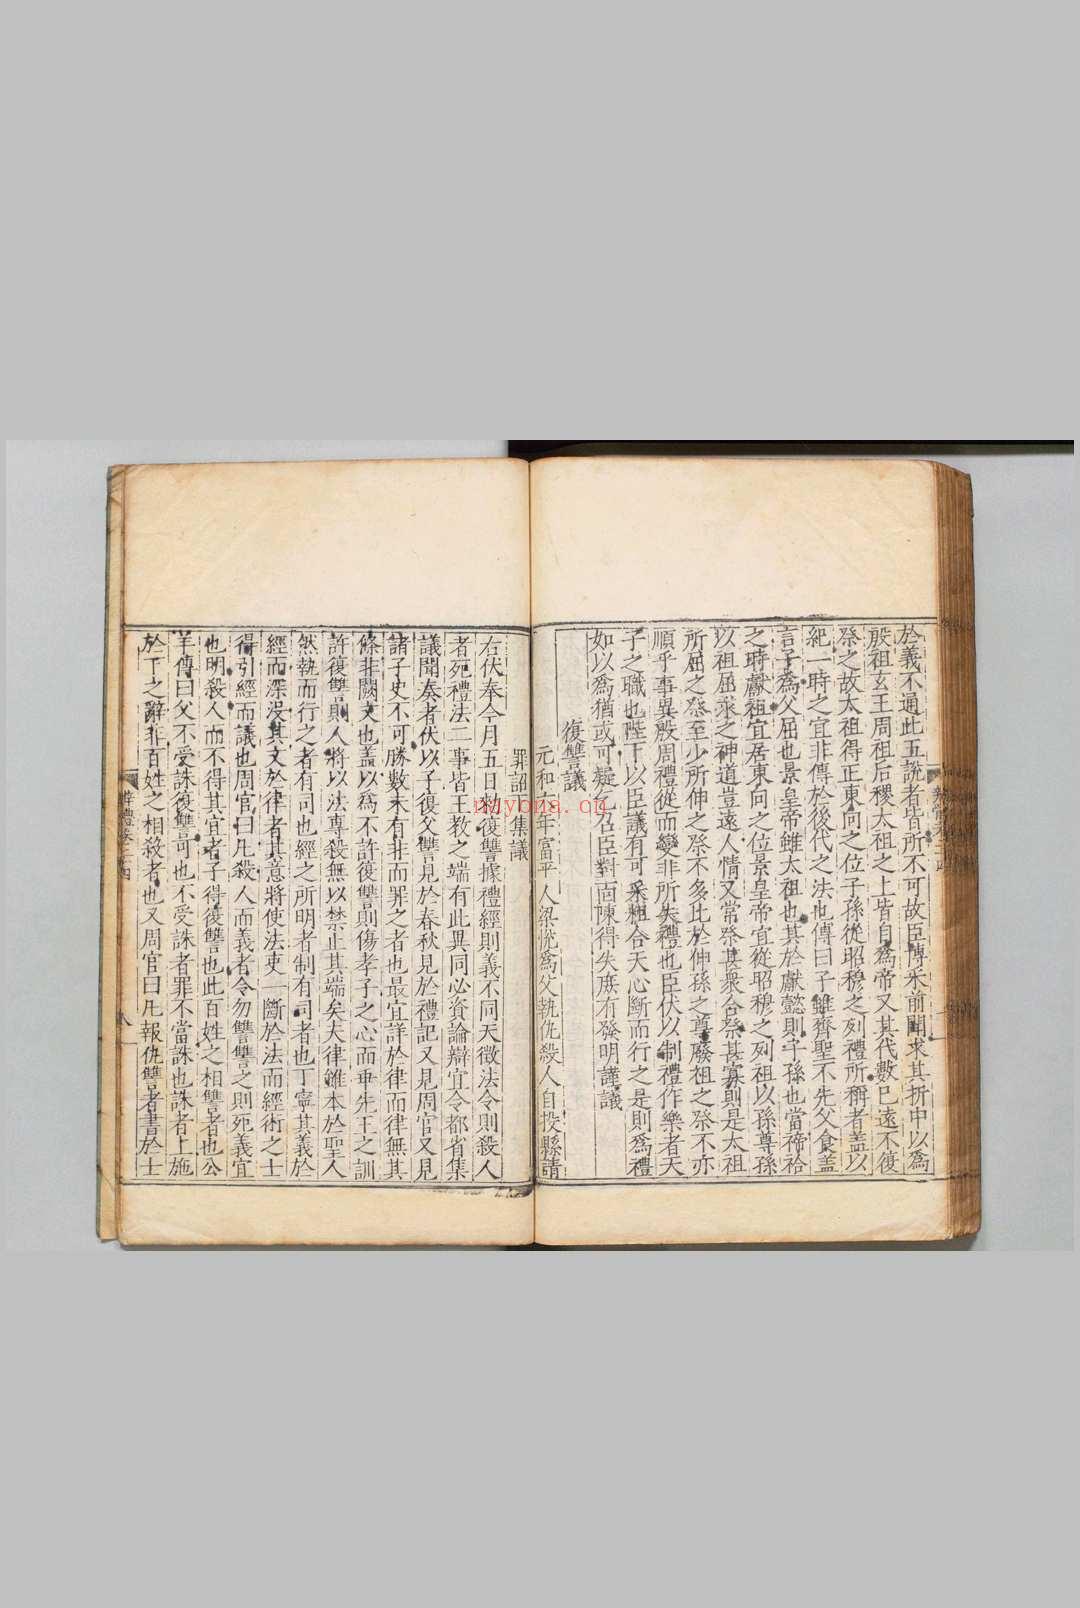 於義不通此五說者皆所不可故臣博采前聞求其折中以為
殷祖玄王周祖后稷太祖之上皆自為帝又其代數已遠不復
祭之故太祖得正東向之位子孫從昭穆之列禮所稱者蓋以
紀一時之宜非傳於後代之法也傳曰子雖齊聖不先父食蓋
言子為父屈也景皇帝雖太祖也其於獻懿則子孫也當禘祫
之時獻祖宜居東向之位景皇帝宜從昭穆之列祖以孫尊孫
以祖屈求之神道豈遠人情又常祭甚衆合祭甚寡則是太祖
所屈之祭至少所伸之祭不多比於伸孫之尊廢祖之祭不亦
順乎事異殷周禮從而變非所失禮也臣伏以制禮作樂者天
子之職也陛下以臣議有可采粗合天心斷而行之是則為禮
如以為猶或可疑乞召臣對面陳得失庶有發明謹議
復讐議
元和六年富平人梁悅為父執仇殺人自投縣請
罪詔下集議
右伏奉今月五日勑復讐據禮經則義不同天徵法令則殺人
者死禮法二事皆王教之端有此異同必資論辯宜令都省集
議聞奏者伏以子復父讐見於春秋見於禮記又見周官又見
諸子史不可勝數未有非而罪之者也最宜詳於律而律無其
條非闕文也盖以為不許復讐則傷孝子之心而乖先王之訓
許復讐則人將以法專殺無以禁止其端矣夫律雖本於聖人
然執而行之者有司也經之所明者制有司者也丁寧其義於
經而深沒其文於律者其意將使法吏一斷於法而經術之士
得引經而議也周官曰凡殺人而義者令勿讐讐之則死義宜
也明殺人而不得其宜者子得復讐也此百姓之相讐者也公
羊傳曰父不受誅復讐可也不受誅者罪不當誅也誅者上施
於下之辭非百姓之相殺者也又周官曰凡報仇讐者書於士
nayona.cn